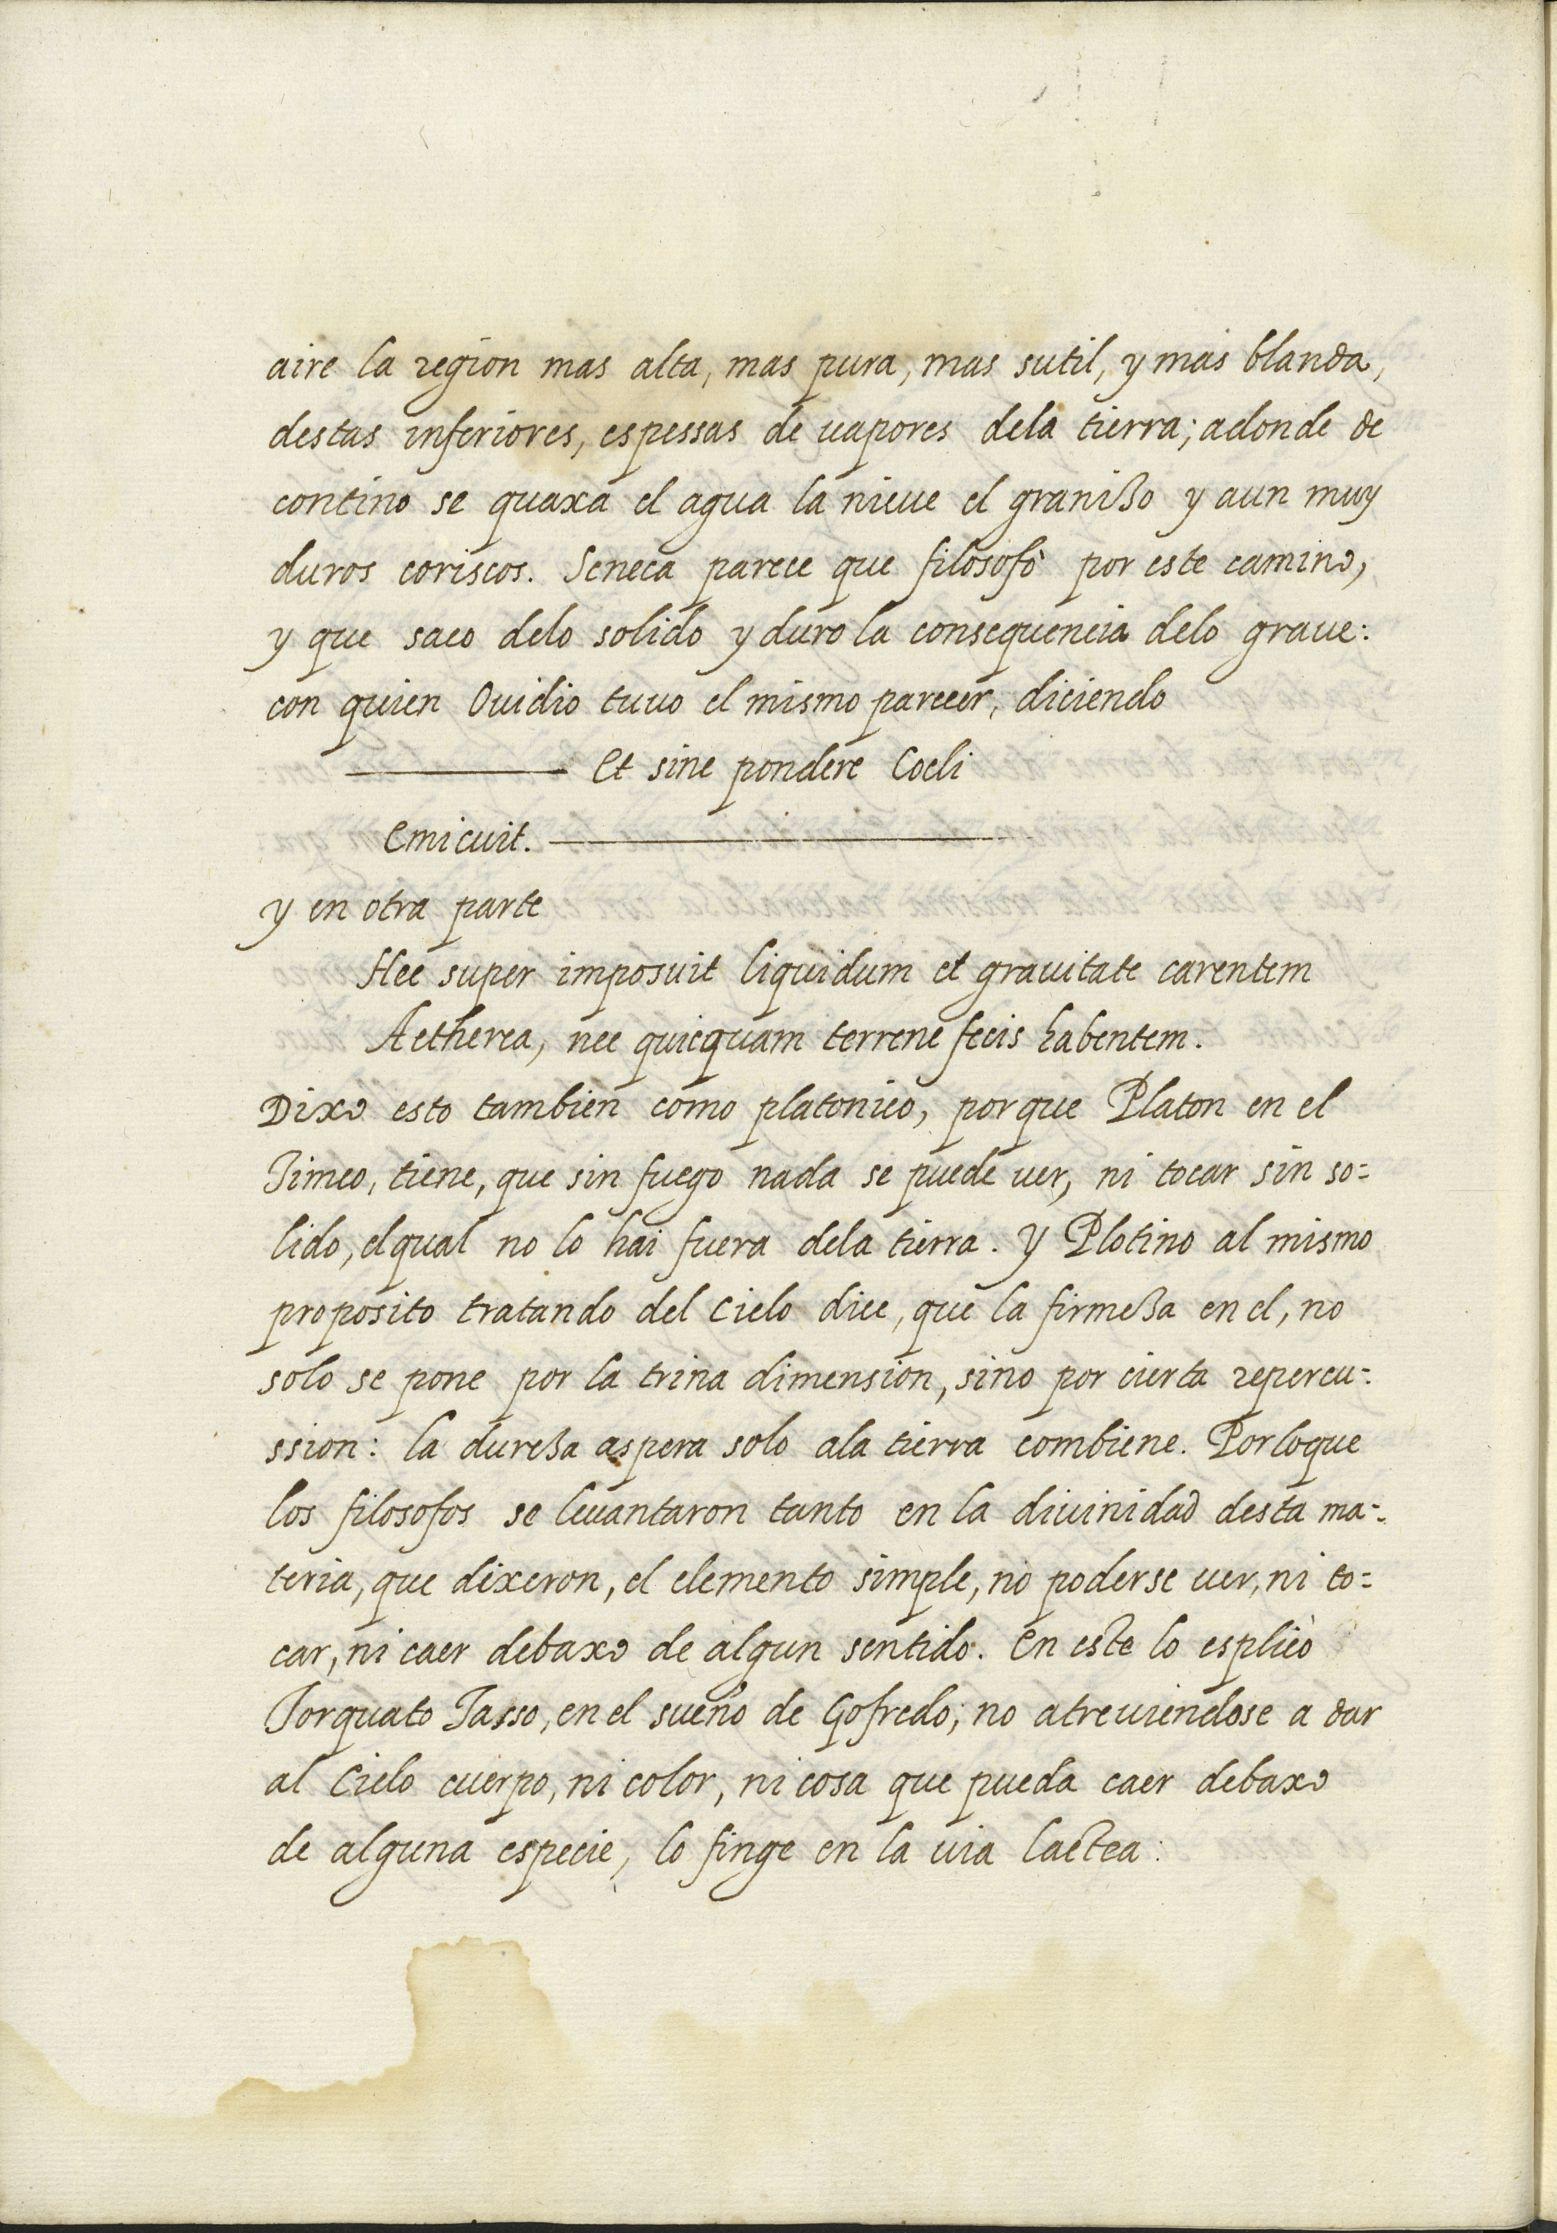 aire la region mas alta, mas pura, mas sutil, y mas blanda,
destas inferiores, espessas de uapores dela tierra; adonde de
contino se quaxa el agua la nieue el granizo y aun muy
duros coriscos. Seneca parece que filosofò por este camino,
y que saco delo solido y duro la consequencia delo graue:
con quien Ouidio tuuo el mismo parecer, diciendo
——— Et sine pondere Coeli
Emicuit. ———
y en otra parte
Hec super imposuit liquidum et grauitate carentem
Aetherea, nec quicquam terrene fecis habentem.
Dixo esto tambien como platonico, porque Platon en el
Timeo, tiene, que sin fuego nada se puede uer, ni tocar sin so=
lido, elqual no lo hai fuera dela tierra. y Plotino al mismo
proposito tratando del Cielo dice, que la firmeza en el, no
solo se pone por la trina dimension, sino por cierta repercu=
ssion: la dureza aspera solo ala tierra combiene. Porloque
los filosofos se leuantaron tanto en la diuinidad desta ma=
teria, que dixeron, el elemento simple, no poderse uer, ni to=
car, ni caer debaxo de algun sentido. En este lo esplicò
Torquato Tasso, en el sueño de Gofredo; no atreuiendose a dar
al Cielo cuerpo, ni color, ni cosa que pueda caer debaxo
de alguna especie, lo finge en la uia lactea: